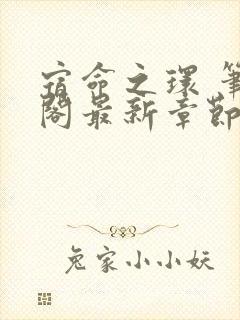 宿命之环 筆
閣最新章節
兔家小小妖